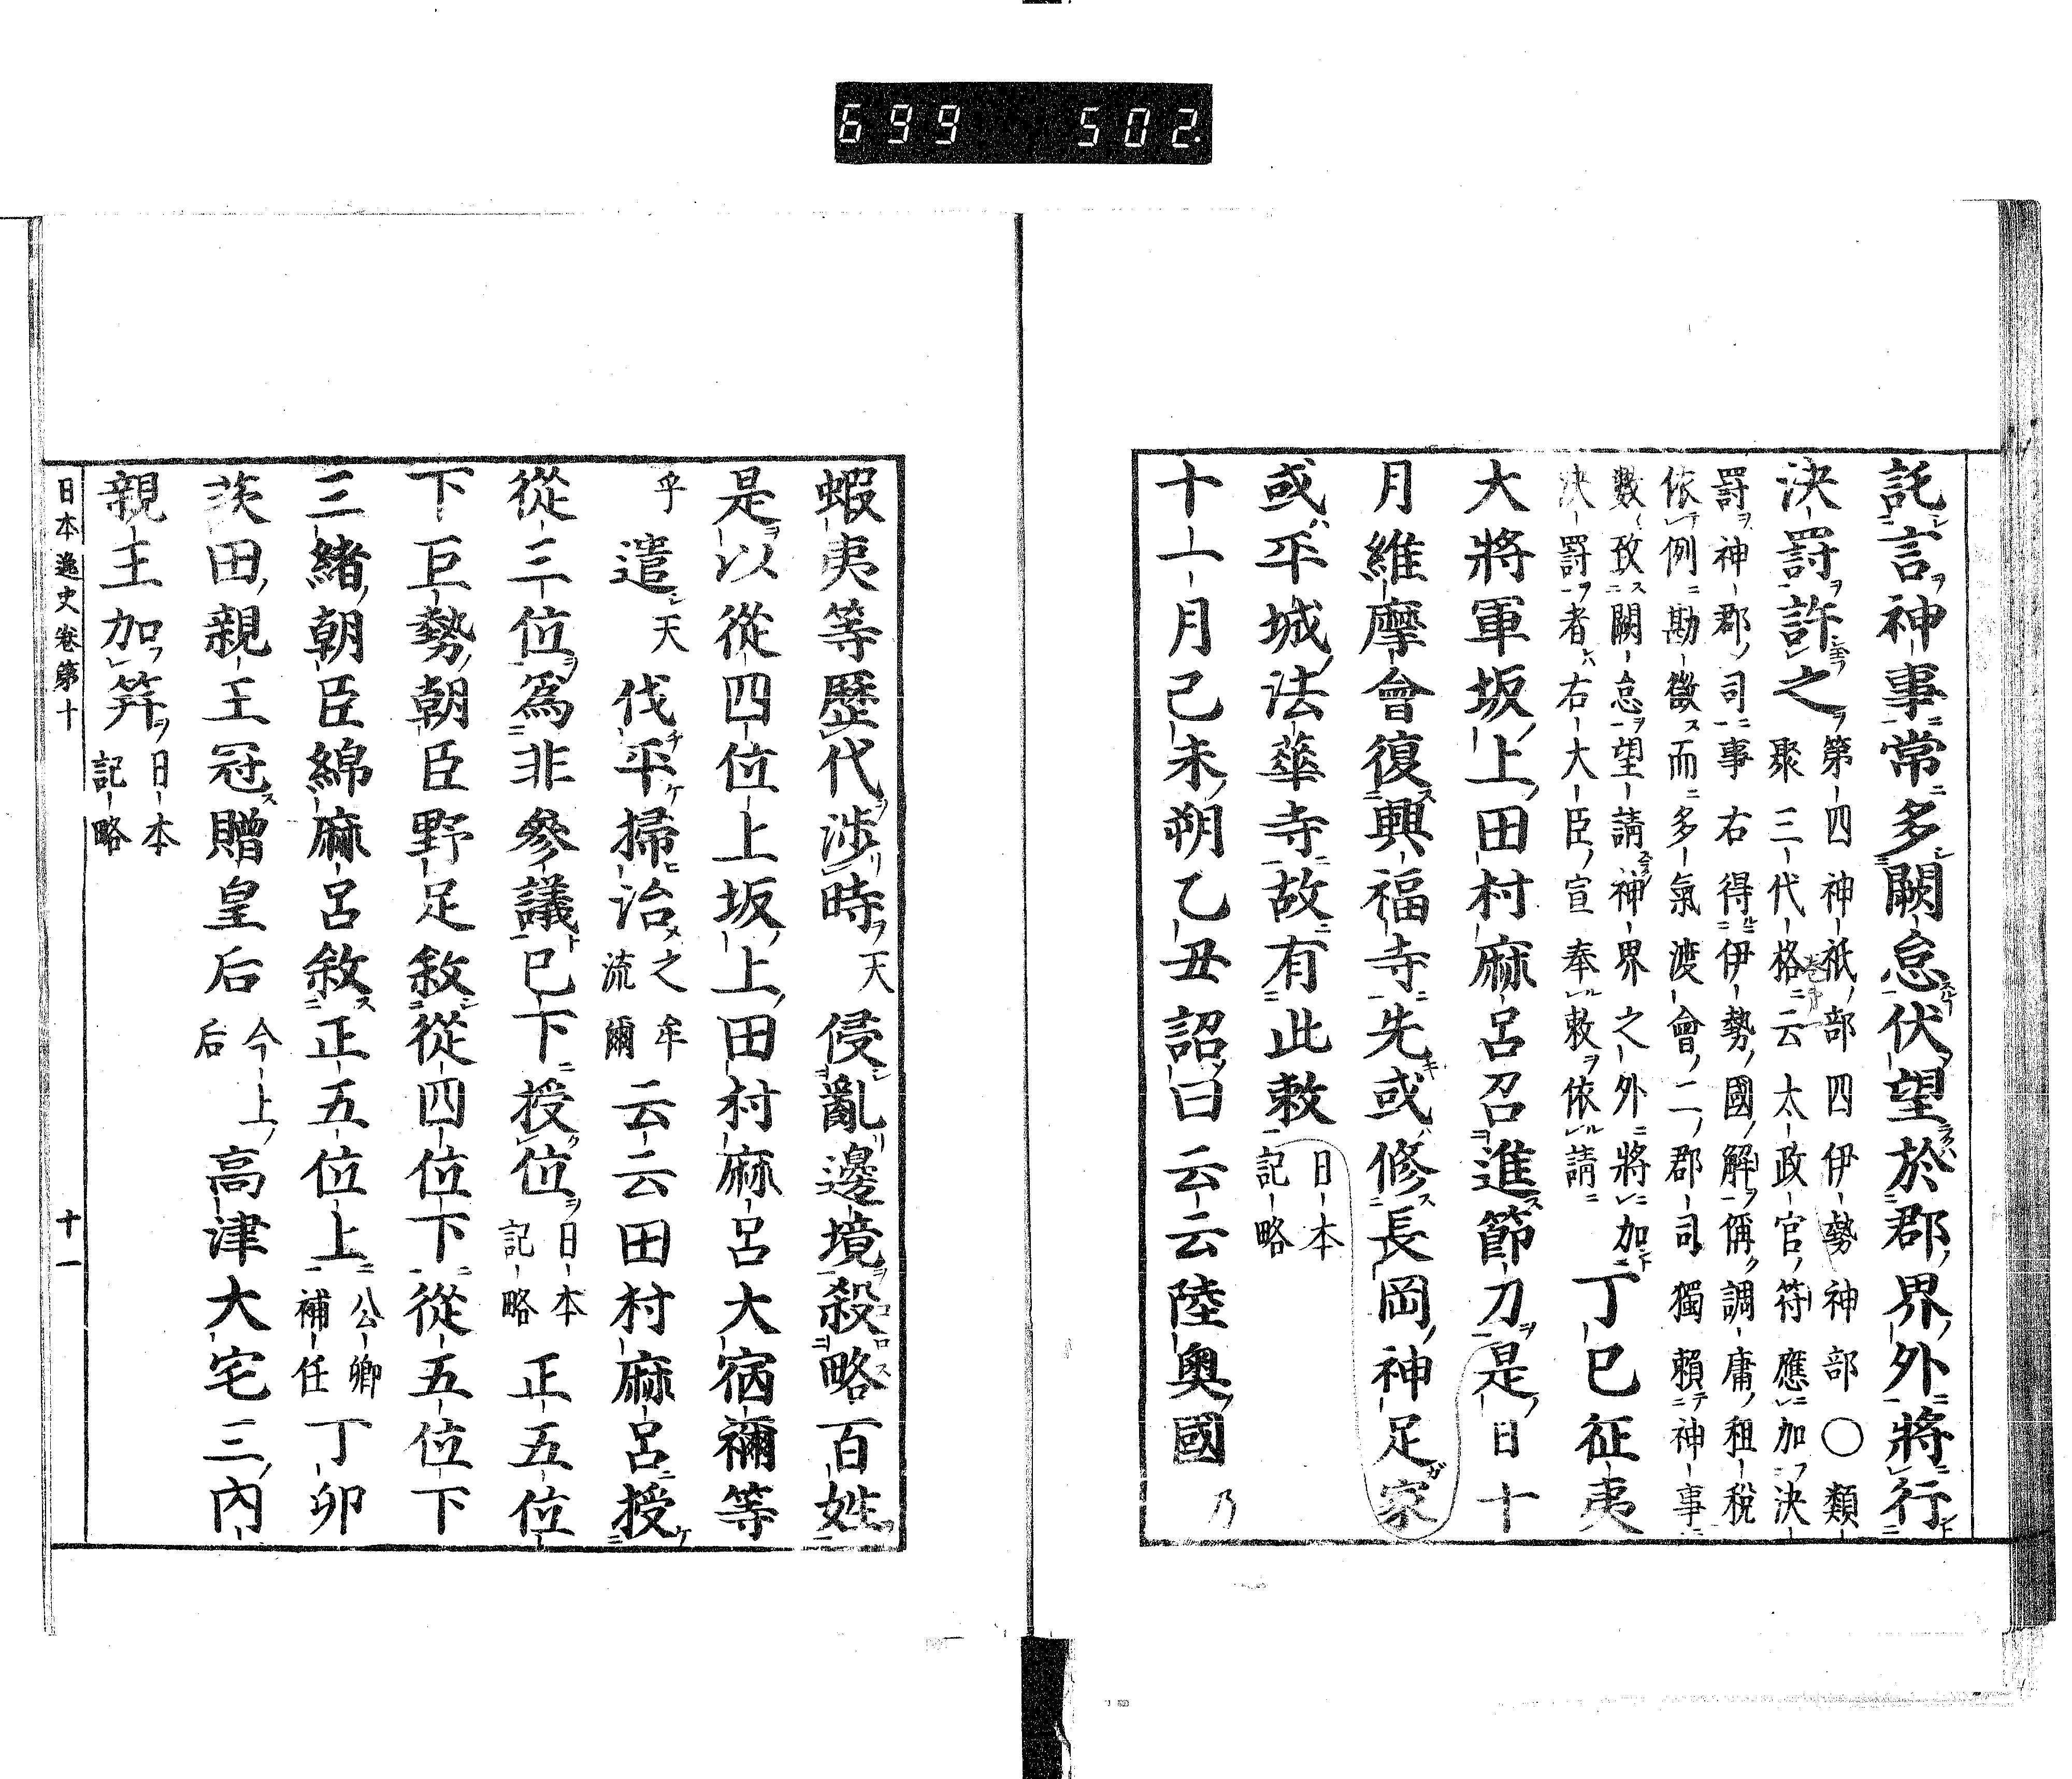 699 502.
託言神事常多闕怠伏望於郡界外將行
決罰許之
第四神祇部四伊勢神部〇類
聚三代格云太政官符應加決
罰神郡司事右得伊勢國解偁調庸租税
依例勘徵而多氣渡會二郡司獨賴神事
數致闕怠望請神界之外將加
決罰者右大臣宣奉敕依請
丁巳征夷
大將軍坂上田村麻呂召進節刀是日十
月維摩會復興福寺先或修長岡神足家
或平城法華寺故有此敕
日本
記略
十一月己未朔乙丑詔曰云云陸奧國
乃
蝦夷等歷代涉時天侵亂邊境殺略百姓
是以從四位上坂上田村麻呂大宿禰等
乎遣天伐平掃治之流牟爾云云田村麻呂授
從三位爲非參議已下授位
日本
記略
正五位
下巨勢朝臣野足敘從四位下從五位下
三緒朝臣綿麻呂敘正五位上
公卿
補任
丁卯
茨田親王冠贈皇后
今上
后
高津大宅三內
親王加笄
日本
記略
日本逸史卷第十 十一